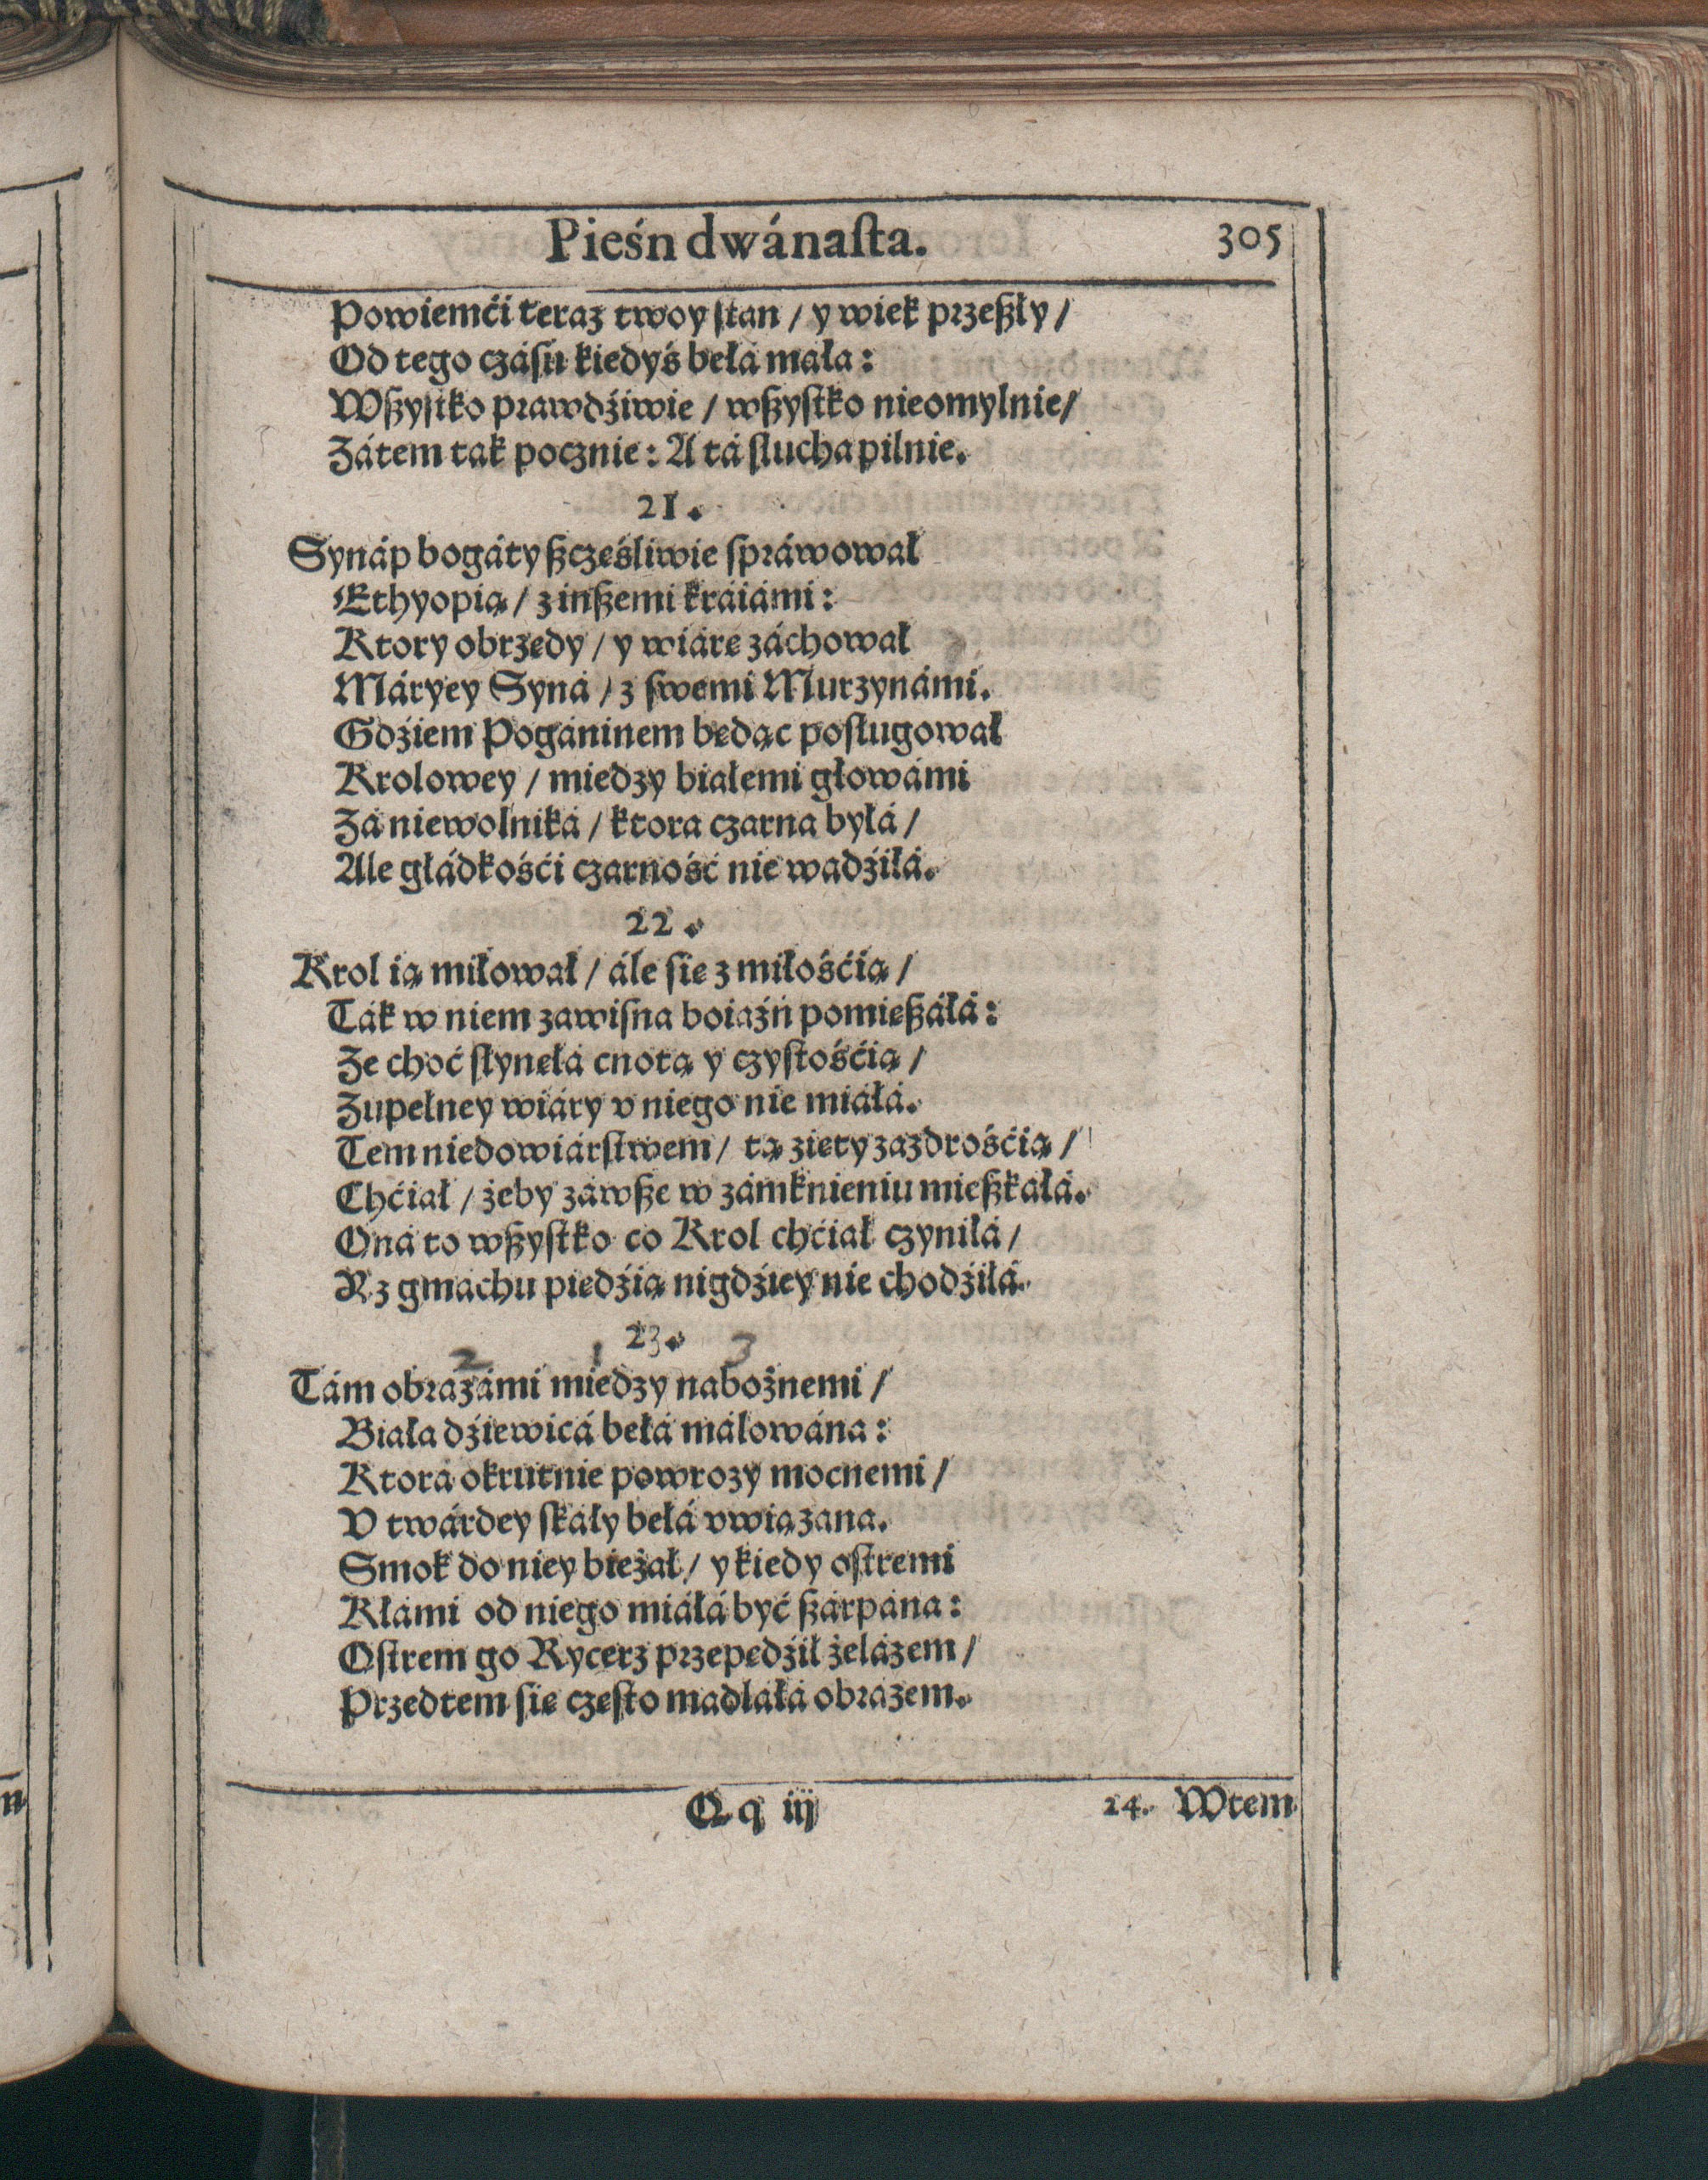 Pieśn dwánaſta. 305
Powiemći teraz twoy ſtan / y wiek przeßły /
Od tego czáſu kiedyś bełá máła:
Wßyſtko prawdźiwie / wßyſtko nieomylnie /
Zátem ták pocznie: A tá ſłucha pilnie.
21.
Synáp bogáty ßcześliwie ſpráwował
Ethyopią / z inßemi kráiámi:
Ktory obrzędy / y wiárę záchował
Máryey Syná / z ſwemi Murzynámi.
Gdźiem Pogáninem będąc poſługował
Krolowey / miedzy białemi głowámi
Zá niewolniká / ktora czarna byłá /
Ale głádkośći czarność nie wadźiłá.
22.
Krol ią miłował / ále ſie z miłośćią /
Ták w niem zawiſna boiaźń pomießáłá:
Ze choć ſłynęłá cnotą y czyſtośćią /
Zupełney wiáry v niego nie miáłá.
Tem niedowiárſtwem / tą zięty zazdrośćią /
Chćiał / żeby záwße w zámknieniu mießkałá.
Oná to wßyſtko co Krol chćiał czyniłá /
Y z gmachu piędźią nigdźiey nie chodźiłá.
23.
2 1 3
Tám obrazámi miedzy nabożnemi /
Biała dźiewicá bełá málowána:
Ktora okrutnie powrozy mocnemi /
V twárdey ſkáły bełá vwiązana.
Smok do niey bieżał / y kiedy oſtremi
Kłámi od niego miáłá być ßárpána:
Oſtrem go Rycerz przepędźił żelázem /
Przed tem ſie częſto madlałá obrazem.
Q q iij 24. Wtem
n